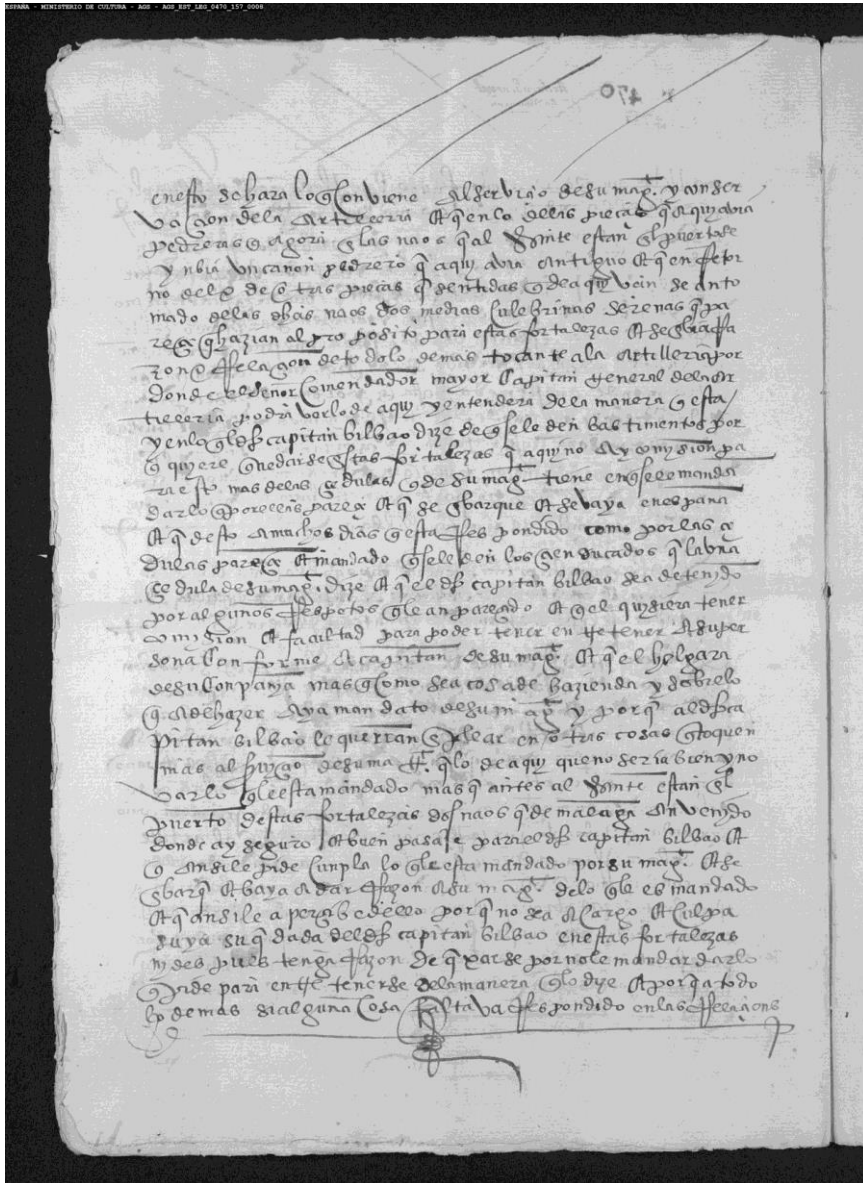 ESPAÑA - MINISTERIO DE CULTURA - AGS - AGS_EST_LEG_0470_157_0008
470
en esto se hara lo q conviene al servicio de su magt. y conser
vaçion de la artilleria et q en lo de las pieças q aquy avia
pedreras q agora las naos q al estan puerto se
un cañon pedrero q aquy avia antiguo et q en Retor
no del q de otras pieças q de aquy van se an to
mado de las naos dos medias culebrinas serenas q pa
reçe q hazian al proposito para estas fortalezas et se
zon e Relaçon de todo lo demas tocante a la artilleria por
donde el señor comendador mayor capitan general de la ar
tilleria podra verlo de aquy y entendera de la manera q esta
y en lo ql dho capitan bilbao dize de q se le den bastimentos por
q quyere quedarse estas fortalezas q aqui no ay comysion pa
ra esto mas de las çedulas q de su magt tiene en q se le manda
darlo q por ellas pareçe et q se enbarque et se vaya en españa
et q desto a muchos dias q esta Respondido como por las çe
dulas pareçe et mandado q se le den los çien ducados q la una
çedula de su magt. dize et q el dho capitan bilbao sea detenydo
por algunos Respetos q le an pareçido et q el quysiera tener
comysion et facultad para poder tener entretener a su per
sona conforme a capitan de su magt. et q el holgara
de su conpanya mas q como sea cosa de hazienda y sobre lo
q a de hazer aya mandato de su magt y porq al dho ca
pitan bilbao le querran enplear en otras cosas q toquen
mas al serviçio de su magt. q lo de aquy que no seria bien yno
varlo q le esta mandado mas q antes al estan el
puerto destas fortalezas dos naos q de malaga an venydo
donde ay seguro et buen pasaje para el dho capitan bilbao et
q ansi le pide cunpla lo q le esta mandado por su magt. et se
enbarq et baya a dar Razon a su magt. de lo q le es mandado
et q ansi le aperçibe dello porq no sea a cargo et culpa
suya su qdada del dho capitan bilbao en estas fortalezas
ny despues tenga Razon de qxarse por no le mandar dar lo
q pide para entretenerse de la manera q lo dize et porq a todo
lo demas si alguna cosa faltava Respondido en las Relaçiones